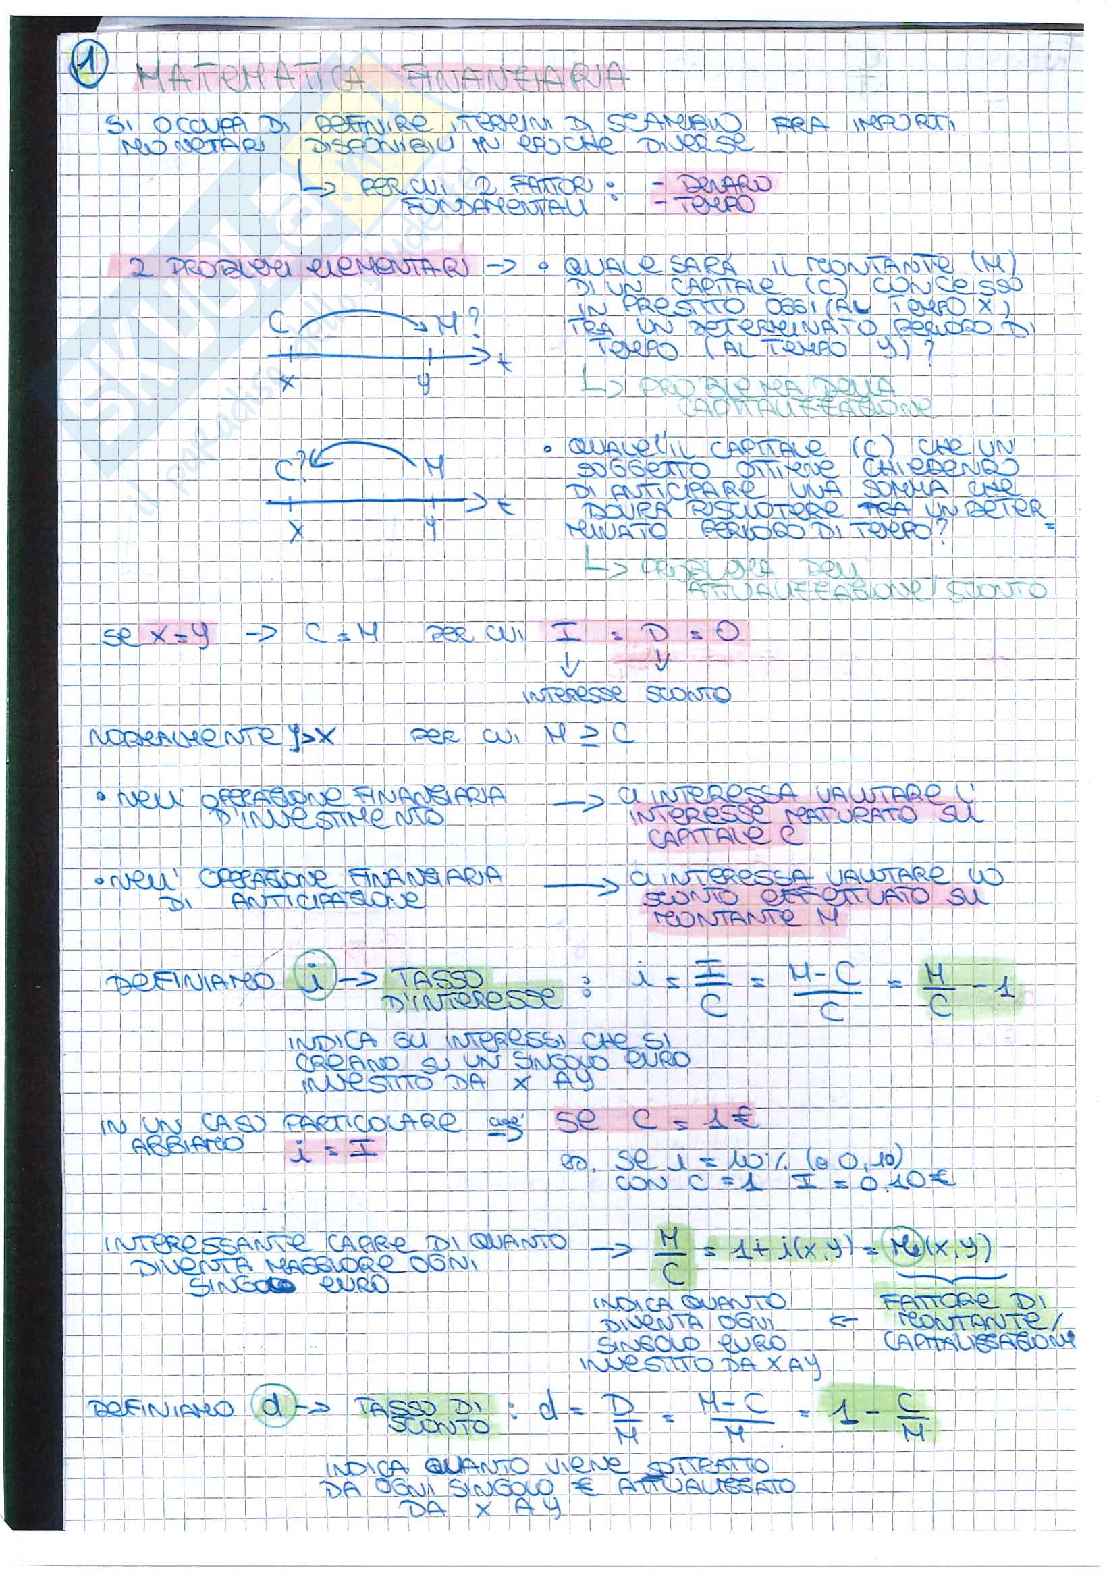 1
MATEMATICA FINANZIARIA
SI OCCUPA DI DEFINIRE I TERMINI DI SCAMBIO FRA IMPORTI
MONETARI DISPONIBILI IN EPOCHE DIVERSE
↳ PER CUI 2 FATTORI : - DENARO
FONDAMENTALI - TEMPO
2 PROBLEMI ELEMENTARI → • QUALE SARÀ IL MONTANTE (M)
DI UN CAPITALE (C) CONCESSO
IN PRESTITO OGGI (AL TEMPO X)
TRA UN DETERMINATO PERIODO DI
TEMPO (AL TEMPO Y)?
C M?
x y t
↳ PROBLEMA DELLA
CAPITALIZZAZIONE
• QUAL È IL CAPITALE (C) CHE UN
SOGGETTO OTTIENE CHIEDENDO
DI ANTICIPARE UNA SOMMA CHE
DOVRÀ RISCUOTERE TRA UN DETER=
MINATO PERIODO DI TEMPO?
C? M
x y t
↳ PROBLEMA DELL
ATTUALIZZAZIONE/SCONTO
SE X=Y → C = M PER CUI I = D = 0
↓ ↓
INTERESSE SCONTO
NORMALMENTE Y>X PER CUI M ≥ C
• NELL' OPERAZIONE FINANZIARIA → CI INTERESSA VALUTARE L'
D'INVESTIMENTO INTERESSE MATURATO SUL
CAPITALE C
• NELL' OPERAZIONE FINANZIARIA → CI INTERESSA VALUTARE LO
DI ANTICIPAZIONE SCONTO EFFETTUATO SUL
MONTANTE M
DEFINIAMO i → TASSO D'INTERESSE : i = I/C = M-C/C = M/C - 1
INDICA GLI INTERESSI CHE SI
CREANO SU UN SINGOLO EURO
INVESTITO DA X A Y
IN UN CASO PARTICOLARE SE C = 1€
ABBIAMO i = I
es. SE i = 10% (o 0,10)
CON C=1 I = 0,10€
INTERESSANTE CAPIRE DI QUANTO → M/C = 1+i(x,y) = (x,y)
DIVENTA MAGGIORE OGNI
SINGOLO EURO
INDICA QUANTO FATTORE DI
DIVENTA OGNI ← MONTANTE/
SINGOLO EURO CAPITALIZZAZIONE
INVESTITO DA X A Y
DEFINIAMO d → TASSO DI SCONTO : d = D/M = M-C/M = 1 - C/M
INDICA QUANTO VIENE SOTTRATTO
DA OGNI SINGOLO € ATTUALIZZATO
DA X A Y